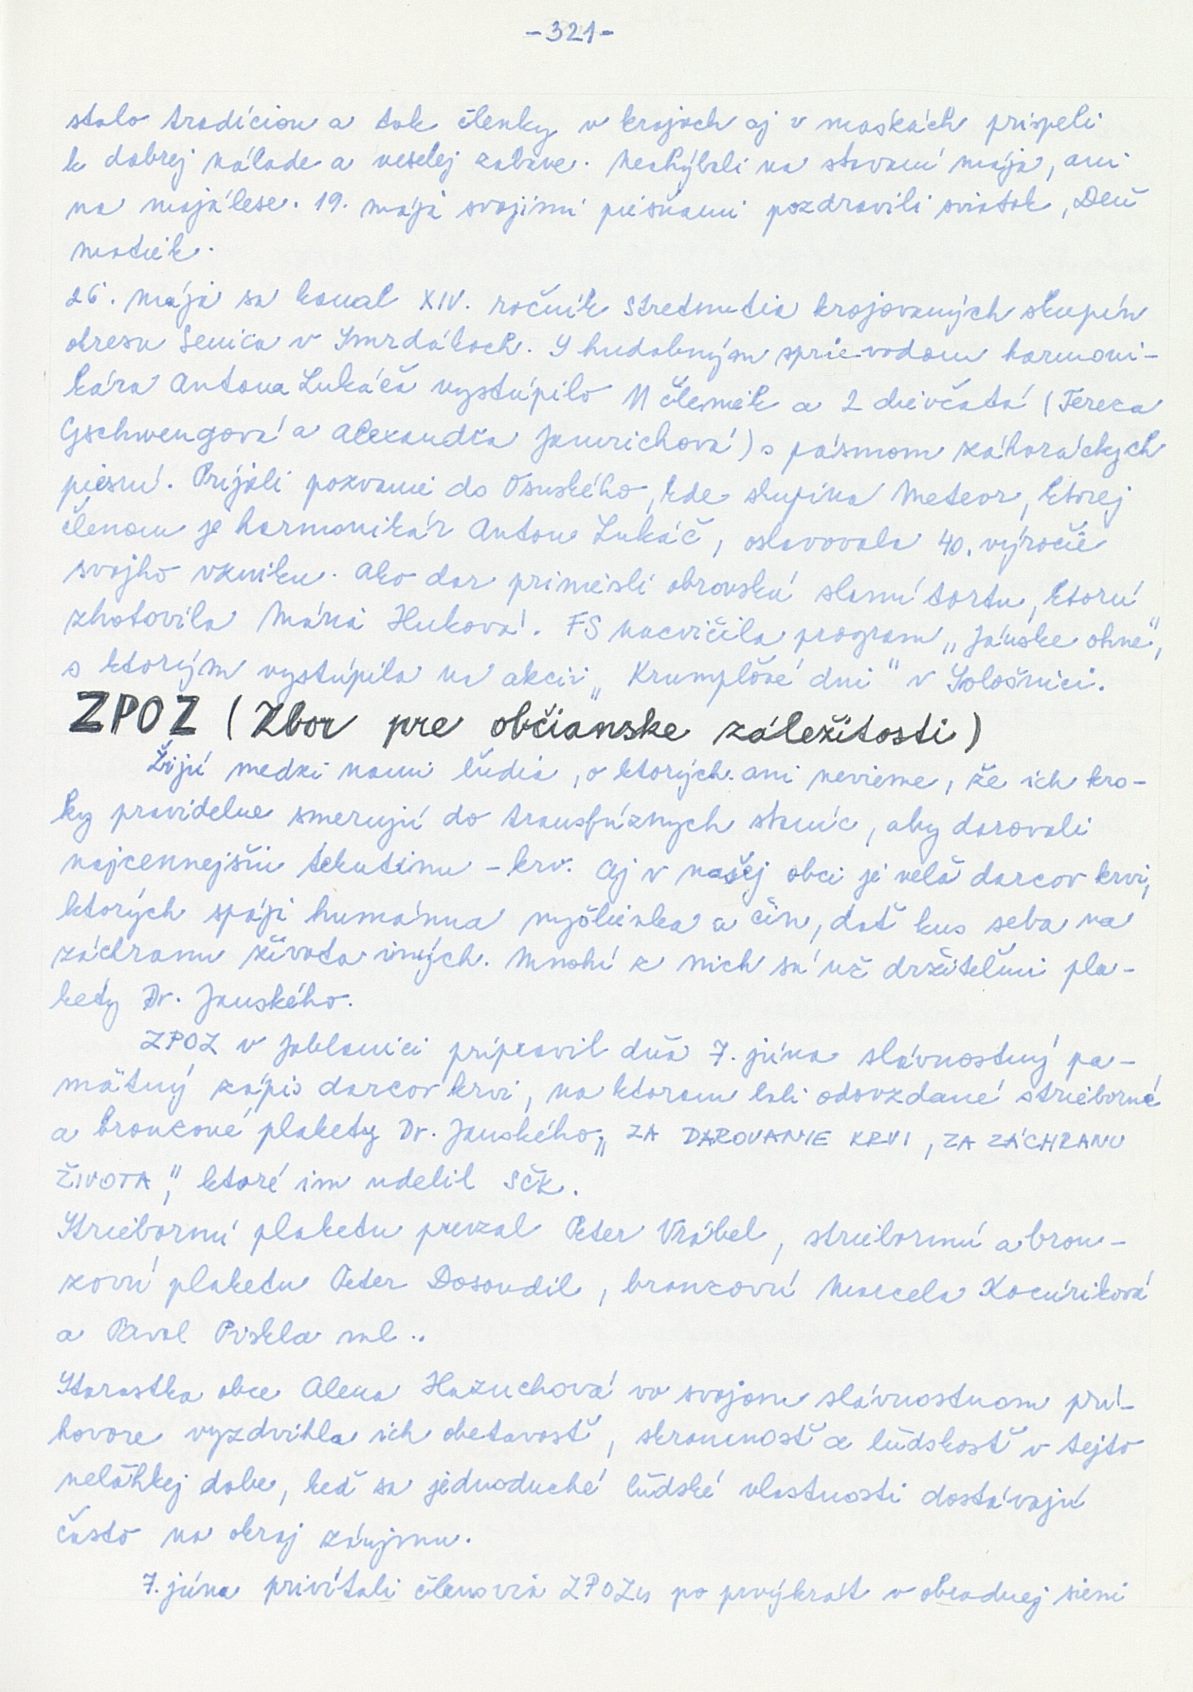 -321-
stalo tradíciou a tak členky v krojoch aj v maskách prispeli
k dobrej nálade a veselej zabave. Nechýbali na stavaní mája, ani
na majálese. 19. mája svojimi piesňami pozdravili sviatok, Deň
matiek.
26. mája sa konal XIV. ročník Stretnutia krojovaných skupín
okresu Senica v Smrdákoch. S hudobným sprievodom harmoni-
kára Antona Lukáča vystúpilo 11 členiek a 2 dievčatá (Tereza
Gschwengová a Alexandra Jamrichová) s pásmom záhoráckych
piesní. Prijali pozvanie do Osuského, kde skupina Meteor, ktorej
členom je harmonikár Anton Lukáč, oslavovala 40. výročie
svojho vzniku. Ako dar priniesli obrovskú slanú tortu, ktorú
zhotovila Mária Huková. FS nacvičila program „Jánske ohne",
s ktorým vystúpila na akcii „Krumplové dni" v Sološnici.
ZPOZ (Zbor pre občianske záležitosti)
Žijú medzi nami ľudia, o ktorých ani nevieme, že ich kro-
ky pravidelne smerujú do transfúznych staníc, aby darovali
najcennejšiu tekutinu - krv. Aj v našej obci je veľa darcov krvi,
ktorých spája humánna myšlienka a čin, dať kus seba na
záchranu života iných. Mnohí z nich sú už držiteľmi pla-
kety Dr. Janského.
ZPOZ v Jablonici pripravil dňa 7. júna slávnostný pa-
mätný zápis darcov krvi, na ktorom boli odovzdané strieborné
a bronzové plakety Dr. Janského „ZA DAROVANIE KRVI, ZA ZÁCHRANU
ŽIVOTA", ktoré im udelil SČK.
Striebornú plaketu prevzal Peter Vrábel, striebornú a bron-
zovú plaketu Peter Dosoudil, bronzovú Marcela Kocúriková
a Pavol Piskla ml..
Starostka obce Alena Hazuchová vo svojom slávnostnom prí-
hovore vyzdvihla ich obetavosť, skromnosť a ľudskosť v tejto
neľahkej dobe, keď sa jednoduché ľudské vlastnosti dostávajú
často na okraj záujmu.
7. júna privítali členovia ZPOZu po prvýkrát v obradnej sieni